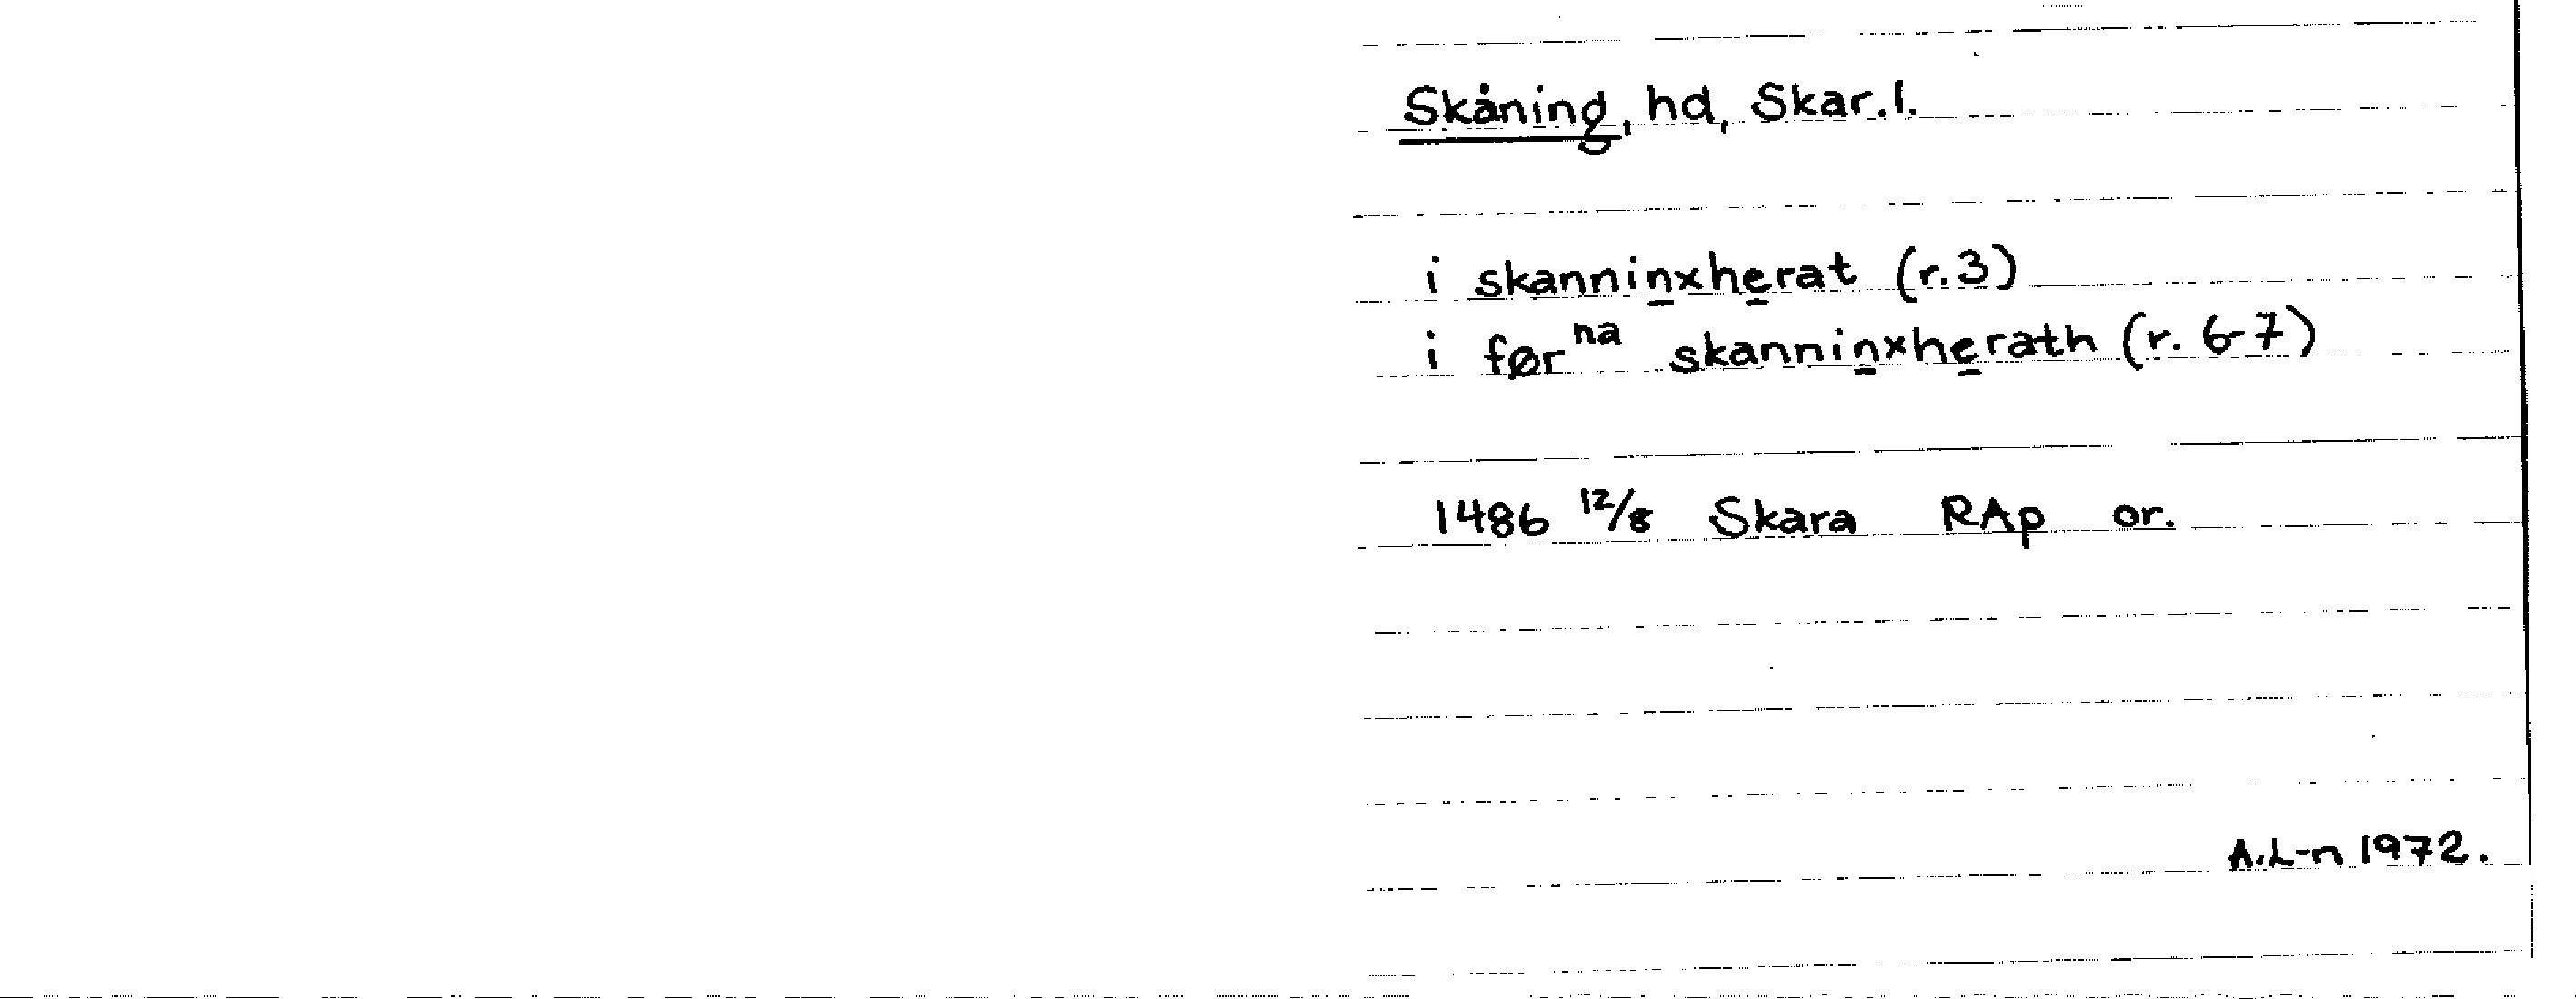 Skåning, hd, Skar.l.
i skanninxherat (r.3)
i førna skanninxherath (r. 6-7)
1486 12/8 Skara RAp or.
A.L-n 1972.